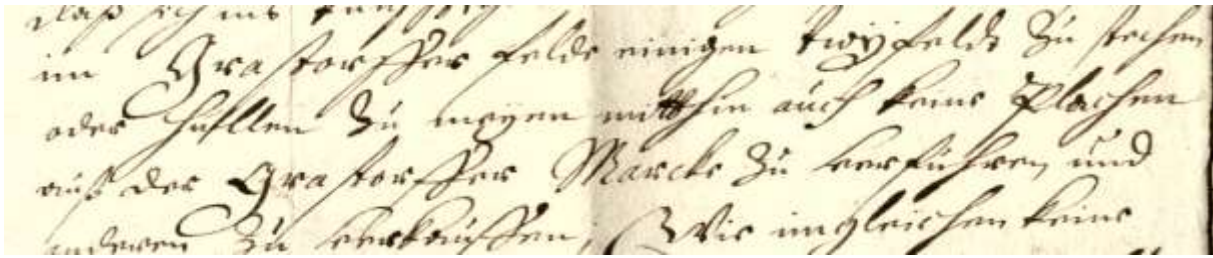 daß sich
im Grastorffer felde einigen twyfelde zu stechen
oder zu meyen mitthin auch keine Plachen
auß der Grastorffer Marcke zu verführen, und
anderen zu verkauffen, Wie imgleichen keine